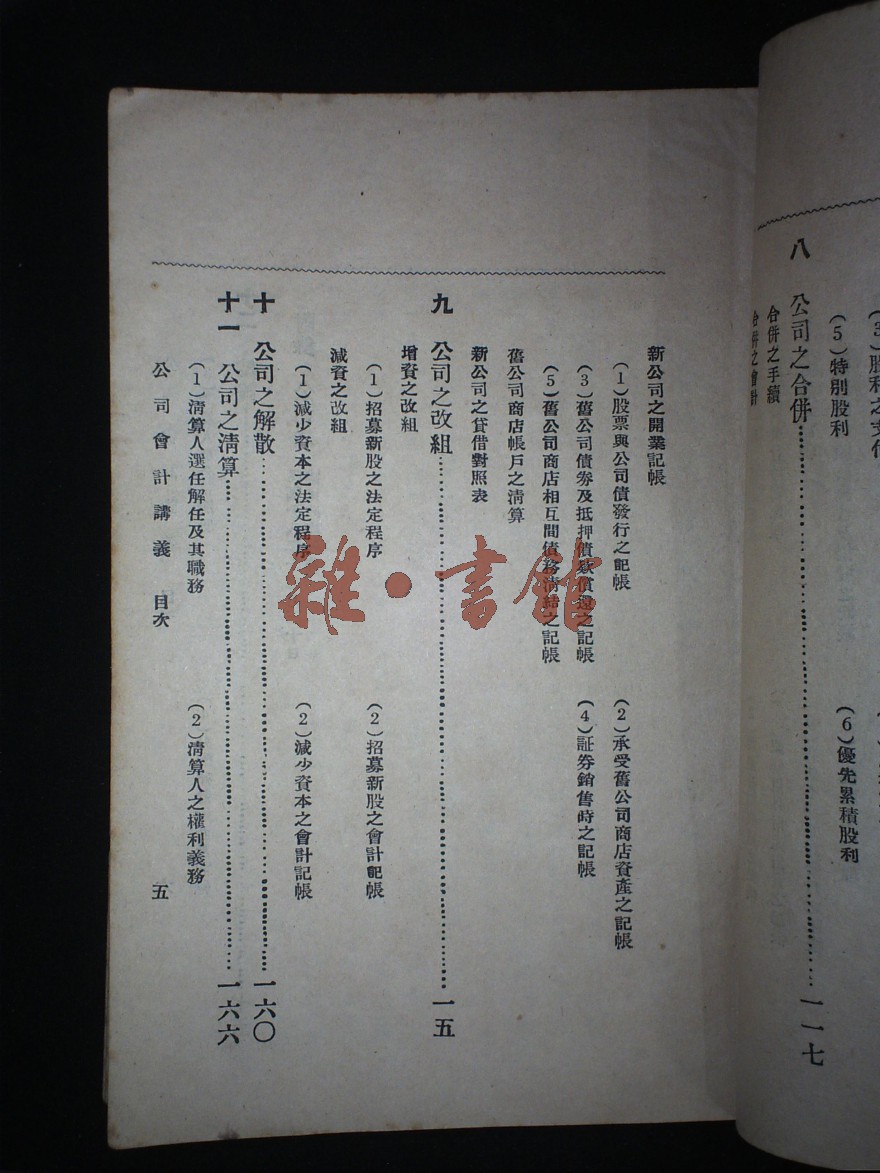 (5)特別股利
(6)優先累積股利
八 公司之合併…………一一七
合併之手續
合併之會計
新公司之開業記帳
(1)股票與公司債發行之記帳
(2)承受舊公司商店資產之記帳
(3)舊公司債券及抵押債欵償還之記帳
(4)証券銷售時之記帳
(5)舊公司商店相互間債務清結之記帳
舊公司商店帳戶之清算
新公司之貸借對照表
九 公司之改組…………一五
增資之改組
(1)招募新股之法定程序
(2)招募新股之會計記帳
減資之改組
(1)減少資本之法定程序
(2)減少資本之會計記帳
十 公司之解散…………一六〇
十一 公司之清算…………一六六
(1)清算人選任解任及其職務
(2)清算人之權利義務
公司會計講義 目次
五
雜·書館